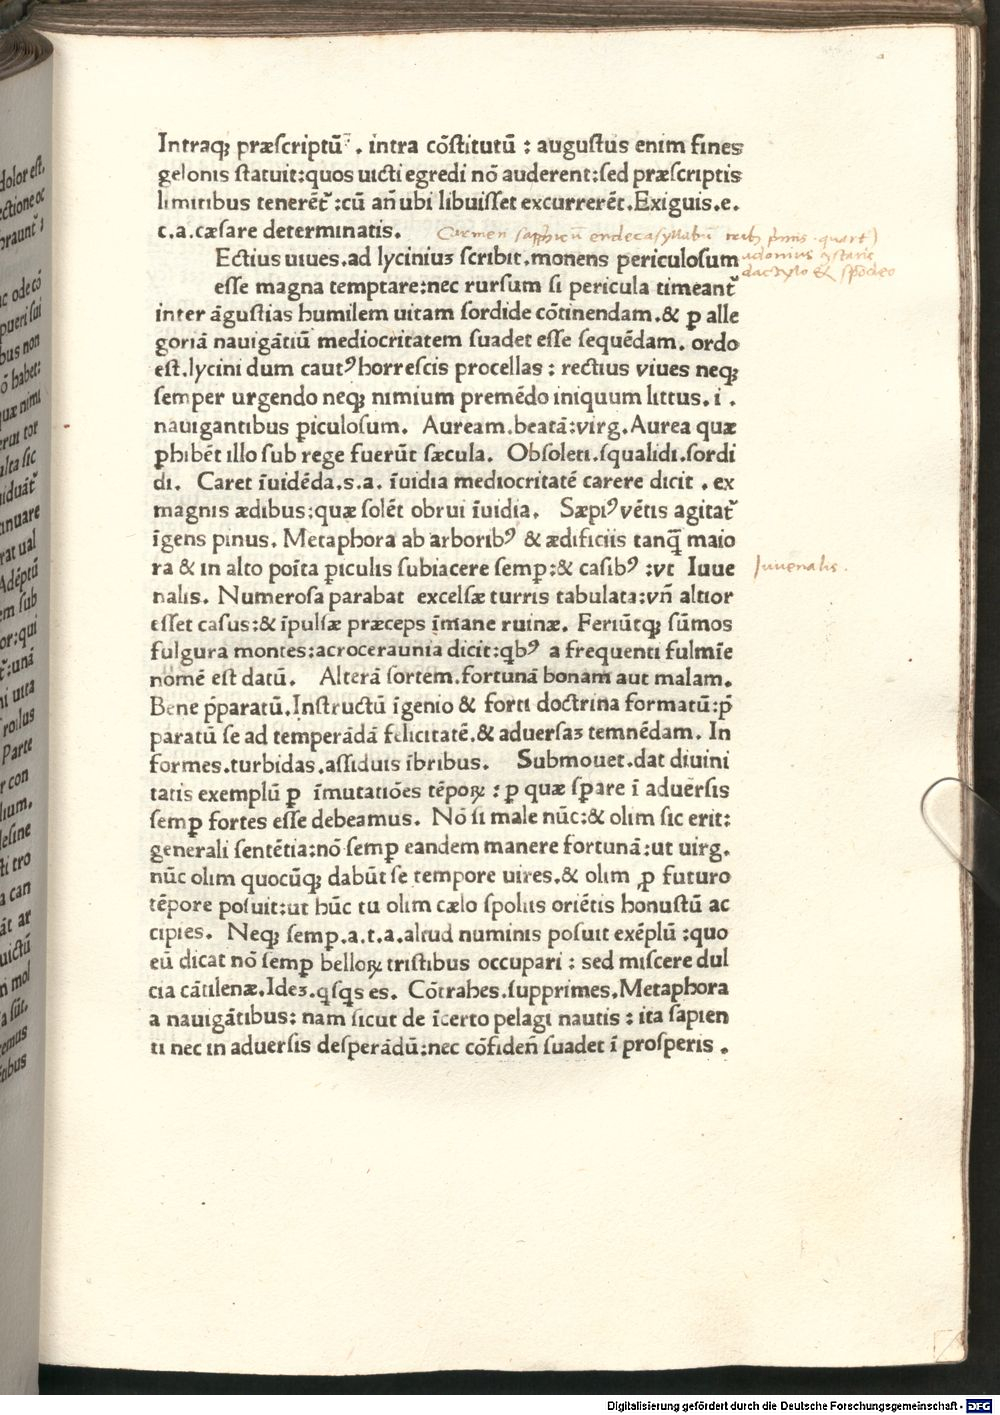 Intraqꝫ præscriptū . intra cōstitutū : augustus enim fines
gelonis statuit:quos uicti egredi nō auderent:sed præscriptis
limitibus tenerēt᷑ :cū an̄ ubi libuisset excurrerēt.Exiguis.e.
c.a.cæsare determinatis.
Carmen sapphicū endecasyllabū trib᷒ p̄mis quart᷒
adonius ꝯstans
dactylo & spōdeo
Ectius uiues.ad lyciniuꝫ scribit.monens periculosum
esse magna temptare:nec rursum si pericula timeant᷑
inter āgustias humilem uitam sordide cōtinendam.& ꝑ alle
goriā nauigātiū mediocritatem suadet esse sequēdam. ordo
est.lycini dum cautꝰ horrescis procellas : rectius viues neqꝫ
semper urgendo neqꝫ nimium premēdo iniquum littus. i .
nauigantibus ꝑiculosum. Auream.beatā:virg.Aurea quæ
ꝑhibēt illo sub rege fuerūt sæcula. Obsoleti.squalidi.sordi
di. Caret īuidēda.s.a. īuidia mediocritatē carere dicit . ex
magnis ædibus:quæ solēt obrui īuidia. Sæpiꝰ vētis agitat᷑
īgens pinus. Metaphora ab arboribꝰ & ædificiis tanq̄ maio
ra & in alto poīta ꝑiculis subiacere semꝑ:& casibꝰ :vt Iuue
nalis. Numerosa parabat excelsæ turris tabulata:vn̄ altior
esset casus:& īpulsæ præceps īmane ruinæ. Feriūtqꝫ sūmos
fulgura montes:acroceraunia dicit:qbꝰ a frequenti fulmīe
nomē est datū. Alterā sortem.fortunā bonam aut malam.
Bene p̄paratū.Instructū īgenio & forti doctrina formatū:p̄
paratū se ad temperādā felicitatē.& aduersaꝫ temnēdam. In
formes.turbidas.assiduis ībribus. Submouet.dat diuini
tatis exemplū ꝑ īmutatiōes tēpoꝝ : ꝑ quæ sꝑare ī aduersis
semꝑ fortes esse debeamus. Nō si male nūc:& olim sic erit:
generali sentētia:nō semꝑ eandem manere fortunā:ut uirg.
nūc olim quocūqꝫ dabūt se tempore uires.& olim ꝓ futuro
tēpore posuit:ut hūc tu olim cælo spoliis oriētis honustū ac
cipies. Neqꝫ semꝑ.a.t.a.aliud numinis posuit exēplū :quo
eū dicat nō semꝑ belloꝝ tristibus occupari : sed miscere dul
cia cātilenæ.Ideꝫ.qsqs es. Cōtrahes.supprimes.Metaphora
a nauigātibus: nam sicut de īcerto pelagi nautis : ita sapien
ti nec in aduersis desperādū:nec cōfiden̄ suadet ī prosperis .
Iuuenalis.
Digitalisierung gefördert durch die Deutsche Forschungsgemeinschaft - DFG